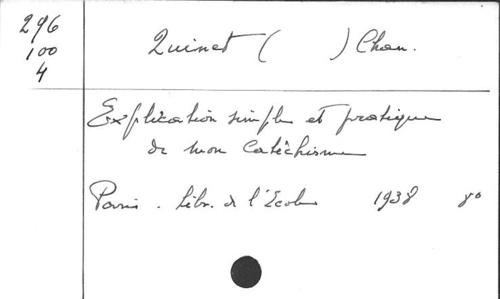 296
100
4
Quinet (      ) Chan.
Explication simple et pratique
de mon Catéchisme
Paris. Libr. de l'Ecole 1938 8°